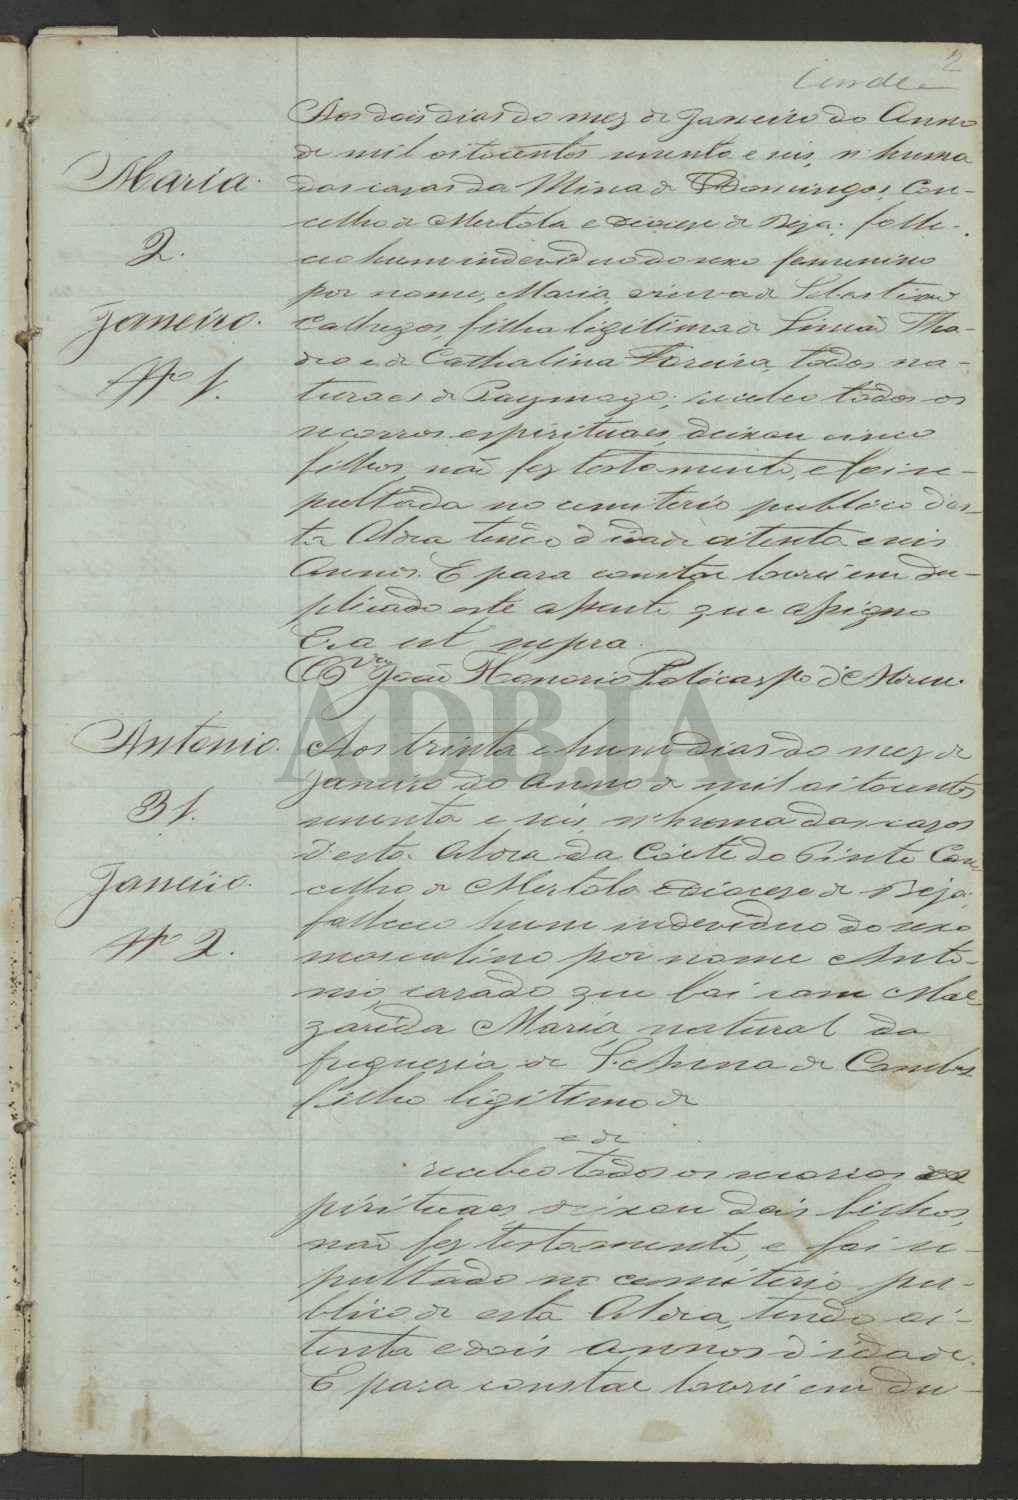 2
Aos dois dias do mez de Janeiro do Anno
de mil oitocentos secenta e seis, n'huma
das casas da Mina de S. Domingos, Con-
celho de Mertola e Diocese de Beja: falle-
ceo hum individuo do sexo femenino
por nome, Maria, viuva de Sebastião
filha legitima de Simão
e de Catharina todos na-
turaes de Paymogo; recebeo todos os
socorros espirituaes, deixou cinco
filhos, não fez testamento, e foi se-
pultada no cemiterio publico d'es-
ta Aldea tendo d'idade oitenta e seis
Annos. E para constar lavrei em du-
plicado este assento que assigno
Era ut supra.
João Honorio Policarpo d'
Maria.
2.
Janeiro.
Nº 1.
Aos trinta e hum dias do mez de
Janeiro do Anno de mil oitocentos
secenta e seis, n'huma das casas
d'esta Aldea da Côrte do Pinto Con-
celho de Mertola e Diocese de Beja;
falleceo hum individuo do sexo
masculino por nome Anto-
nio, casado que foi com Mar-
garida Maria, natural da
freguezia de S. Anna de Cambas
filho legitimo de
e de
recebeo todos os socorros es-
pirituaes, deixou dois filhos,
não fez testamento, e foi se-
pultado no cemiterio pu-
blico de esta Aldea, tendo oi-
tenta e dois annos d'idade.
E para constar lavrei em du-
Antonio.
31.
Janeiro.
Nº 2.
ADBJA